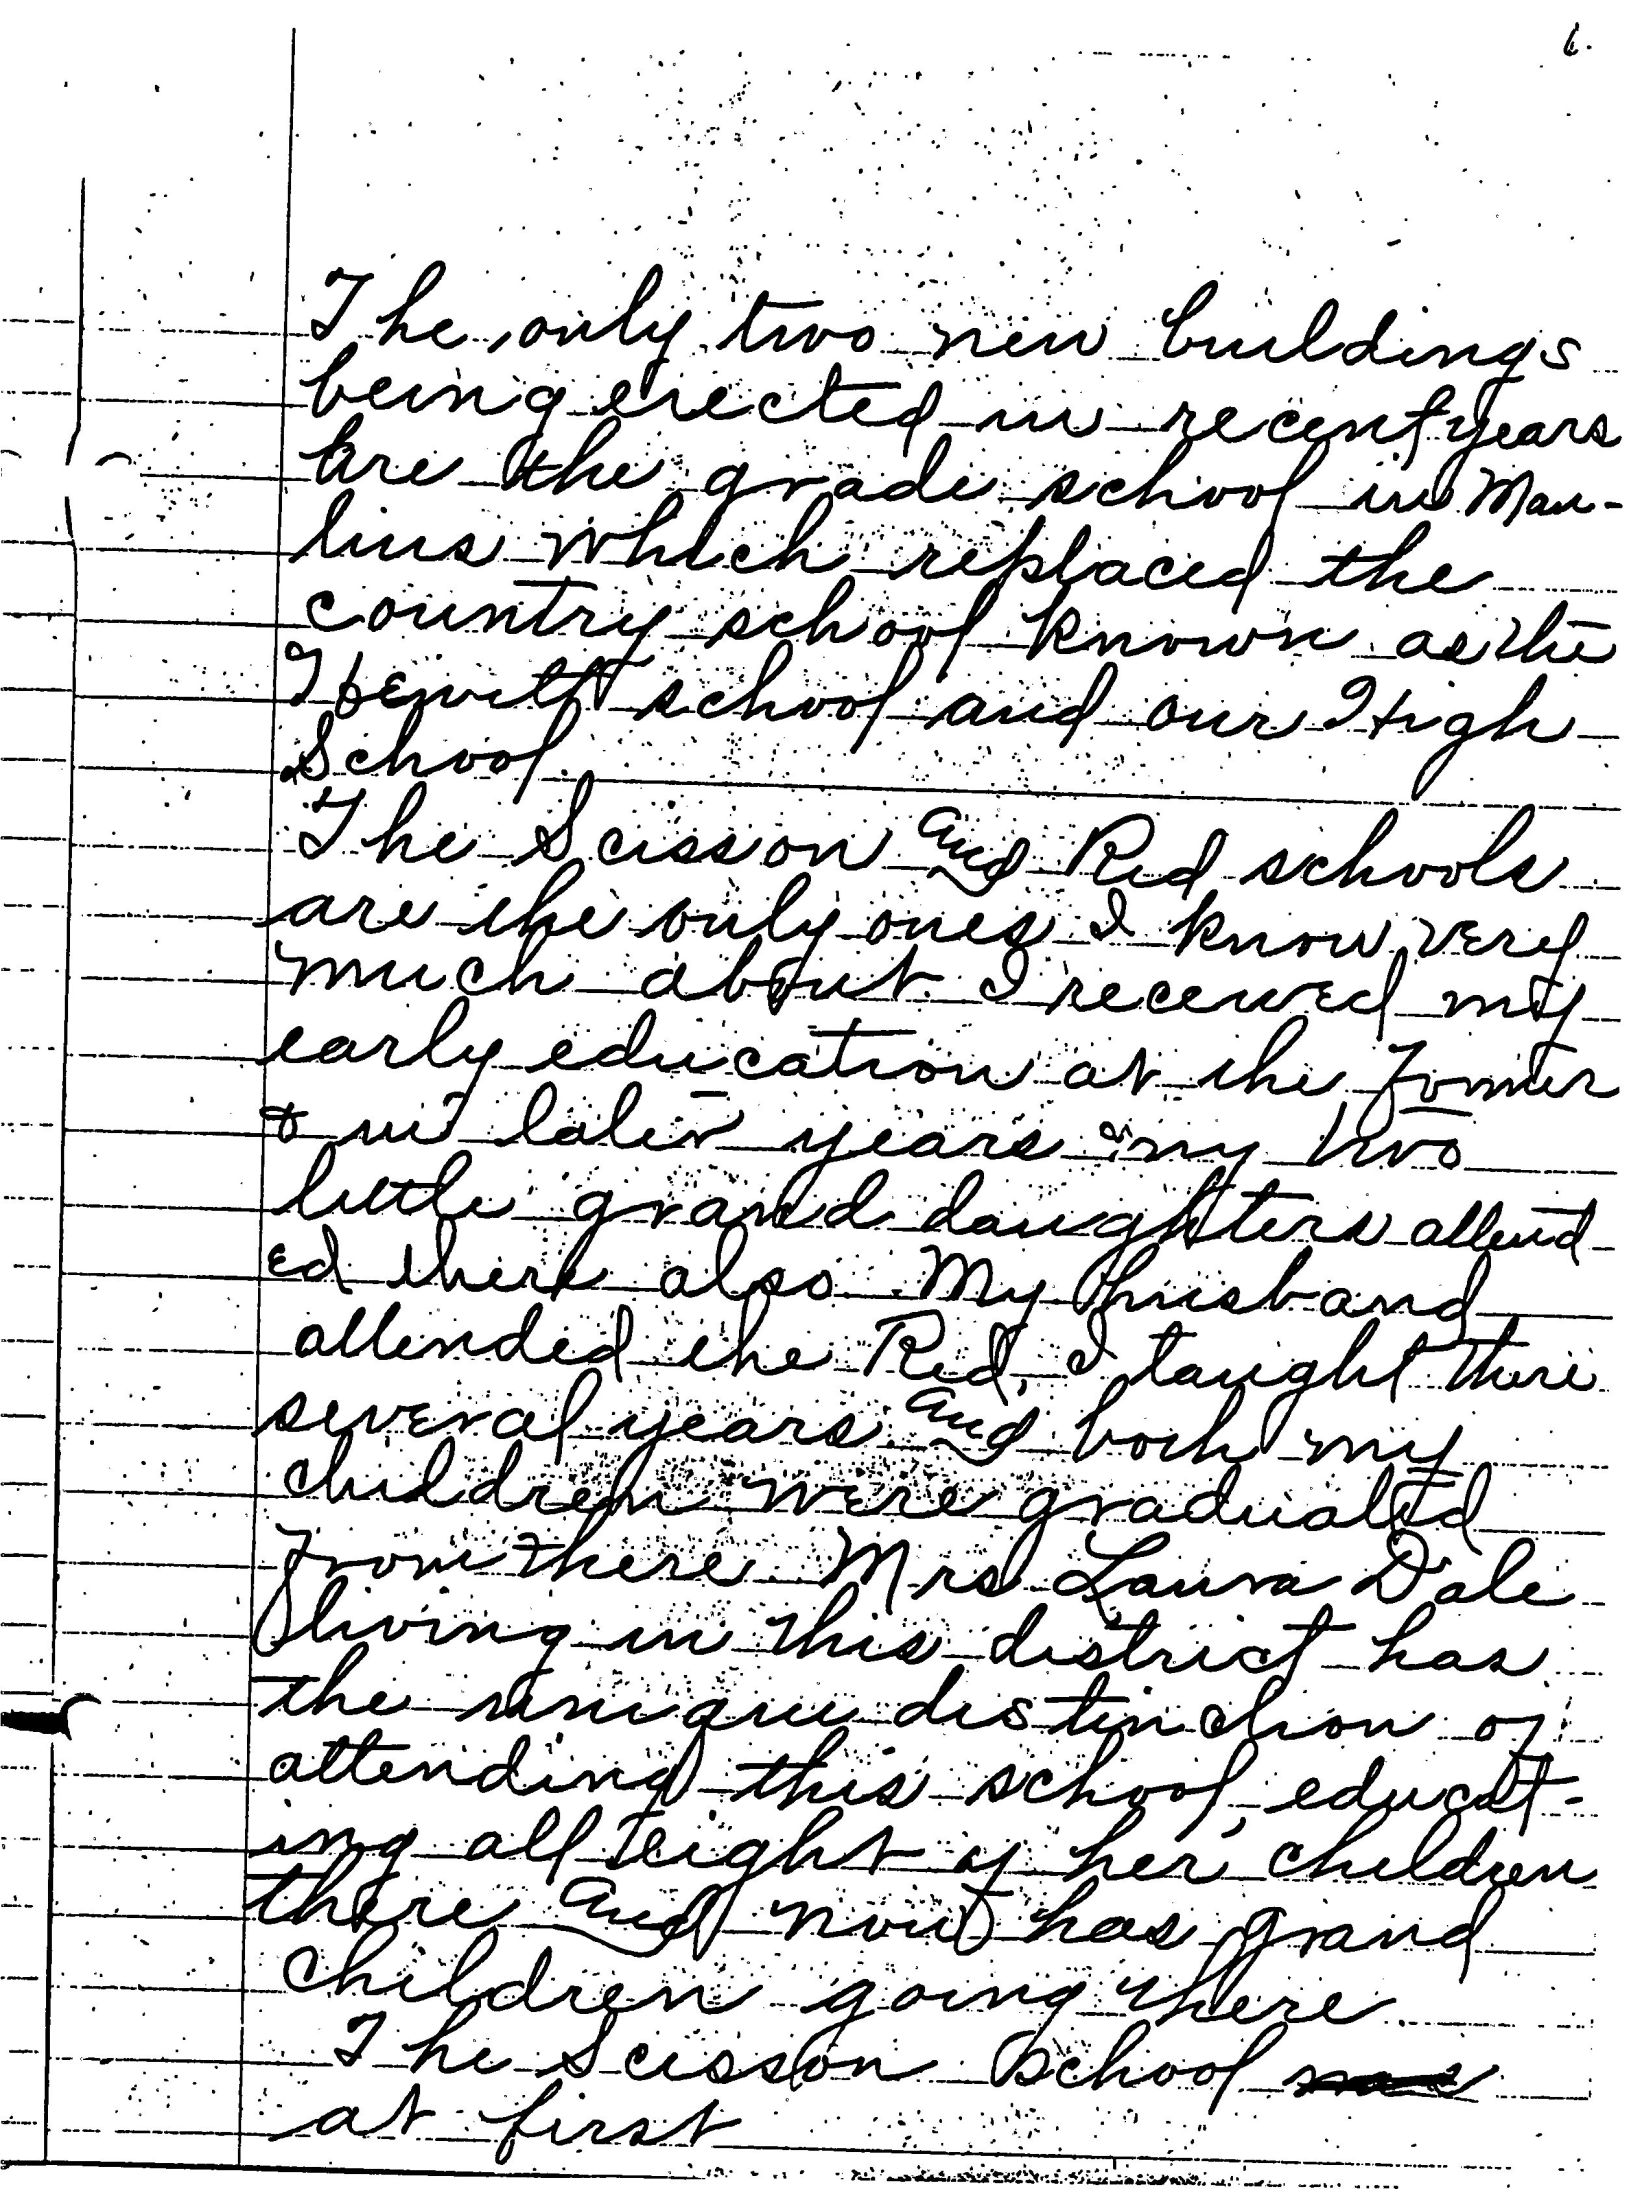 6.
The only two new buildings
being erected in recent years
are the grade school in Man-
lius which replaced the
country school known as the
Hewitt school and our High
School.
The Scisson and Red schools
are the only ones I know very
much about. I received my
early education at the former
& in later years my two
little grand daughters attend-
ed there also. My husband
attended the Red, I taught there
several years and both my
children were graduated
from there. Mrs. Laura Dale
living in this district has
the unique distinction of
attending this school, educat-
ing all eight of her children
there and now has grand
children going there.
The Scisson School
at first